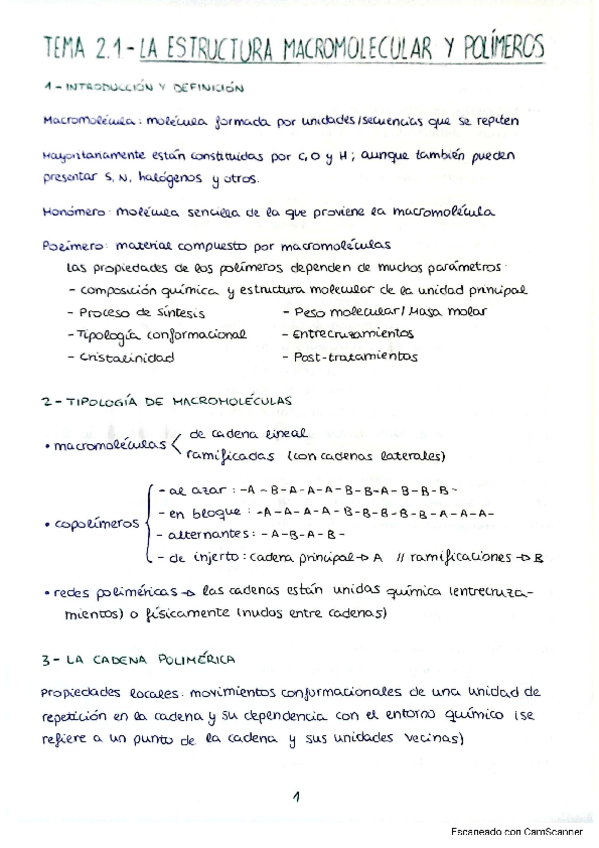 TEMA 2.1 - LA ESTRUCTURA MACROMOLECULAR Y POLÍMEROS
1 - INTRODUCCIÓN Y DEFINICIÓN
Macromolécula: molécula formada por unidades/secuencias que se repiten
Mayoritariamente están constituidas por C, O y H; aunque también pueden
presentar S, N, halógenos y otros.
Monómero: molécula sencilla de la que proviene la macromolécula
Polímero: material compuesto por macromoléculas
Las propiedades de los polímeros dependen de muchos parámetros:
- Composición química y estructura molecular de la unidad principal
- Proceso de síntesis - Peso molecular / Masa molar
- Tipología conformacional - Entrecruzamientos
- Cristalinidad - Post-tratamientos
2 - TIPOLOGÍA DE MACROMOLÉCULAS
• macromoléculas < de cadena lineal
ramificadas (con cadenas laterales)
• copolímeros { - al azar: -A-B-A-A-A-B-B-A-B-B-B-
- en bloque: -A-A-A-A-B-B-B-B-B-A-A-A-
- alternantes: -A-B-A-B-
- de injerto: cadena principal → A // ramificaciones → B
• redes poliméricas → las cadenas están unidas química (entrecruza-
mientos) o físicamente (nudos entre cadenas)
3 - LA CADENA POLIMÉRICA
Propiedades locales: movimientos conformacionales de una unidad de
repetición en la cadena y su dependencia con el entorno químico (se
refiere a un punto de la cadena y sus unidades vecinas)
1
Escaneado con CamScanner